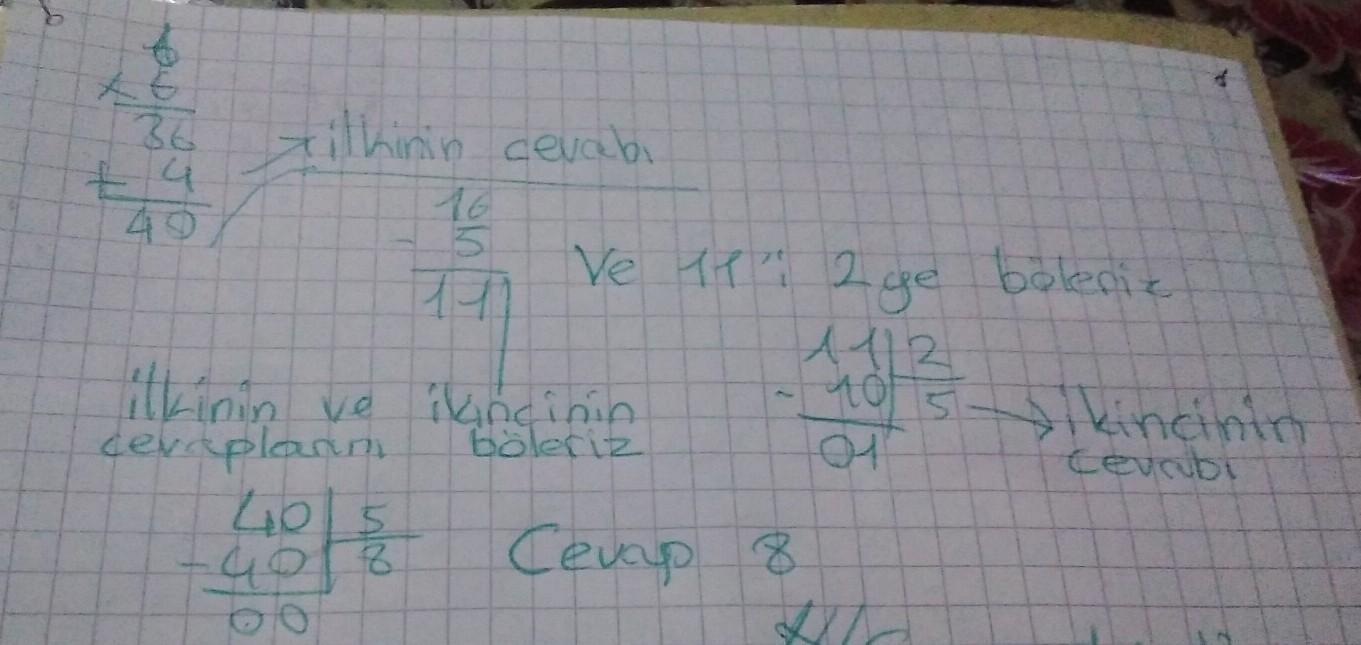 6
× 6
36
+ 4
40
ilkinin cevabı
16
- 5
11
Ve 11'i 2ye böleriz
11 2
- 10 5 → ikincinin
01 cevabı
ilkinin ve ikincinin
cevaplarını böleriz
40 5
- 40 8
00
Cevap 8